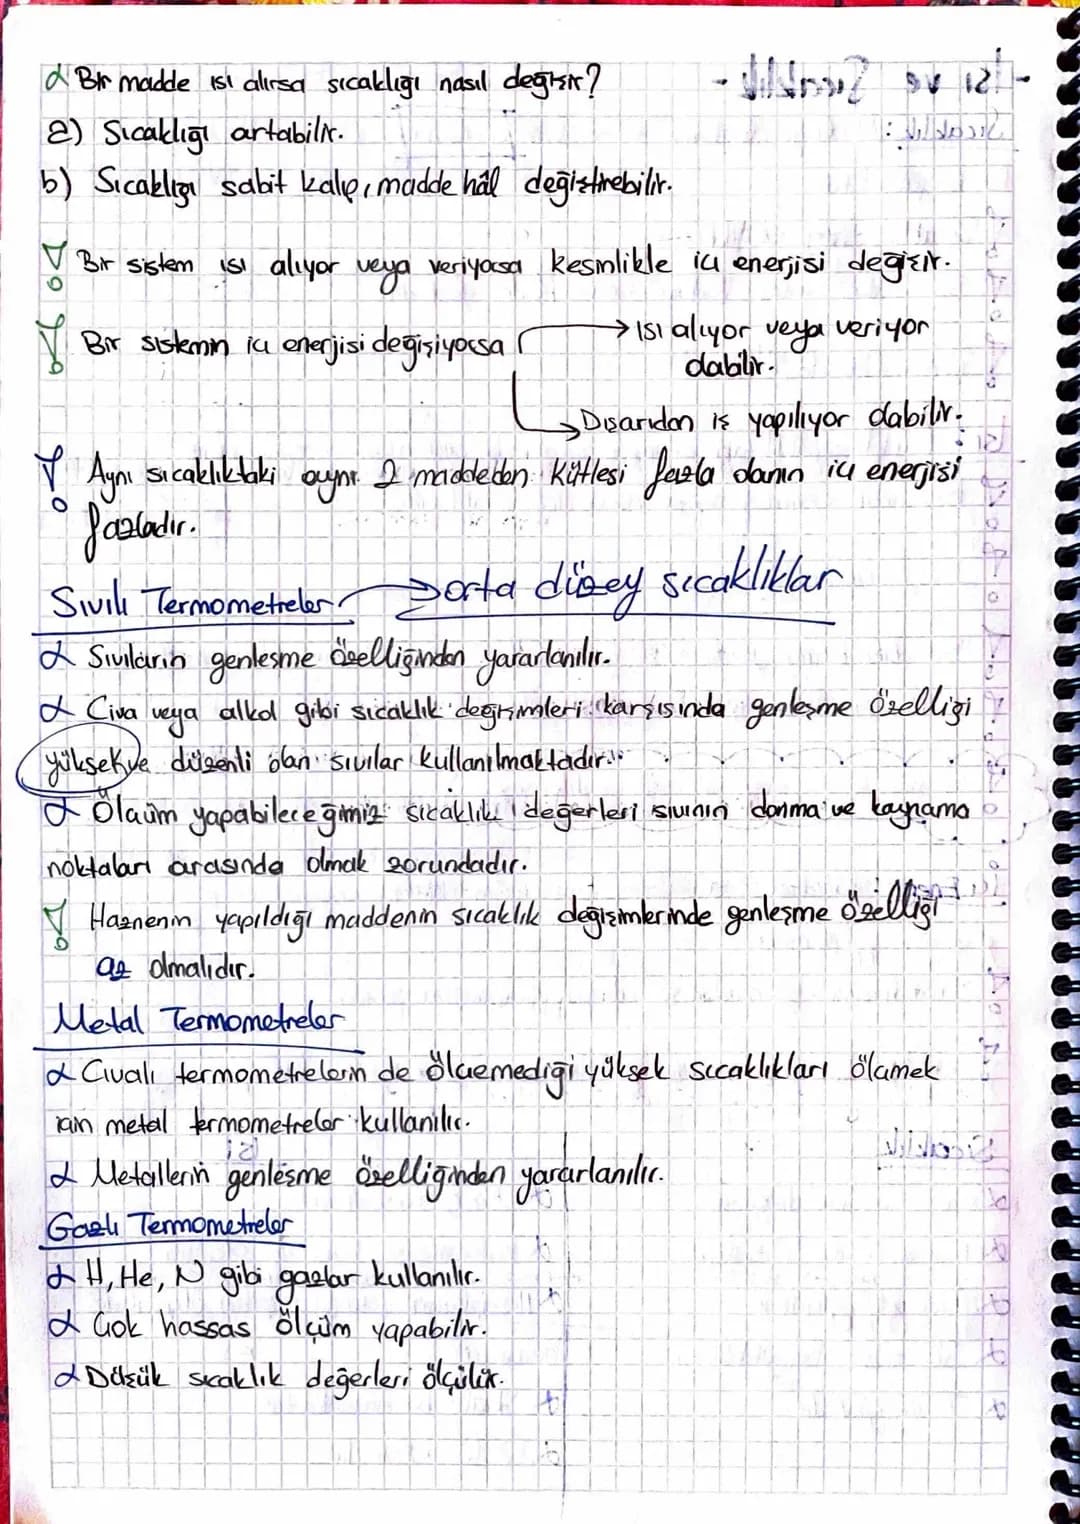 α Bir madde ısı alırsa sıcaklığı nasıl değişir?
a) Sıcaklığı artabilir.
b) Sıcaklığı sabit kalıp, madde hâl değiştirebilir.
! Bir sistem ısı alıyor veya veriyorsa kesinlikle iç enerjisi değişir.
! Bir sistemin iç enerjisi değişiyorsa → ısı alıyor veya veriyor
olabilir.
→ Dışarıdan iş yapılıyor olabilir.
! Aynı sıcaklıktaki aynı 2 maddeden kütlesi fazla olanın iç enerjisi
fazladır.
Sıvılı Termometreler → orta düzey sıcaklıklar
α Sıvıların genleşme özelliğinden yararlanılır.
α Civa veya alkol gibi sıcaklık değişimleri karşısında genleşme özelliği
yüksek ve düzenli olan sıvılar kullanılmaktadır.
α Ölçüm yapabileceğimiz sıcaklık değerleri sıvının donma ve kaynama
noktaları arasında olmak zorundadır.
! Haznenin yapıldığı maddenin sıcaklık değişimlerinde genleşme özelliği
az olmalıdır.
Metal Termometreler
α Civalı termometrelerin de ölçemediği yüksek sıcaklıkları ölçmek
için metal termometreler kullanılır.
α Metallerin genleşme özelliğinden yararlanılır.
Gazlı Termometreler
α H, He, N gibi gazlar kullanılır.
α Çok hassas ölçüm yapabilir.
α Düşük sıcaklık değerleri ölçülür.